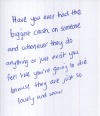 Have you ever had the
biggest crush on someone
and whenever they do
anything or just exist you
feel like you're going to die
because they are just so
lovely and wow!